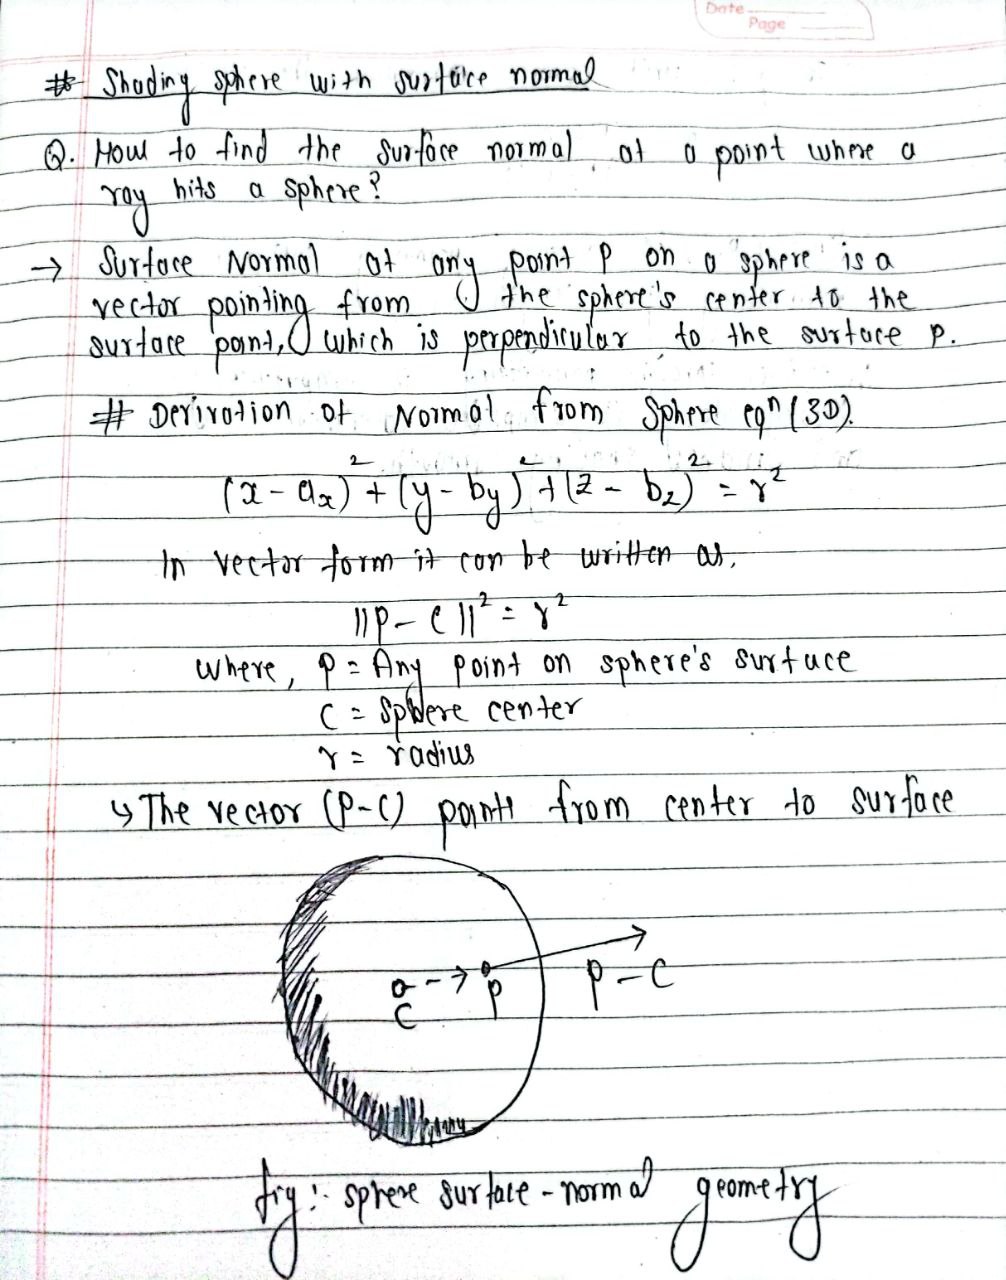 Date
Page
# Shading sphere with surface normal
Q. How to find the surface normal at a point where a
ray hits a sphere?
→ Surface Normal at any point P on a sphere is a
vector pointing from the sphere's center to the
surface point, which is perpendicular to the surface P.
# Derivation of Normal from Sphere eqⁿ (3D).
(x - aₓ)² + (y - by)² + (z - bz)² = r²
In vector form it can be written as,
||P - C||² = r²
where, P = Any point on sphere's surface
C = Sphere center
r = radius
↳ The vector (P-C) points from center to surface
C → P P - C
fig: sphere surface-normal geometry